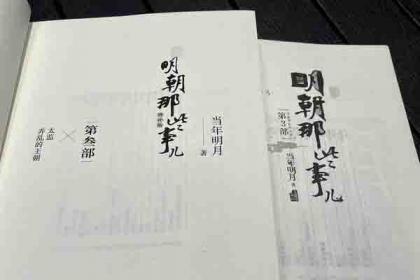 明朝那些事儿
增补版
当年明月
著
第叁部
太监
弄乱的王朝
明朝那些事儿
第3部
当年明月 著